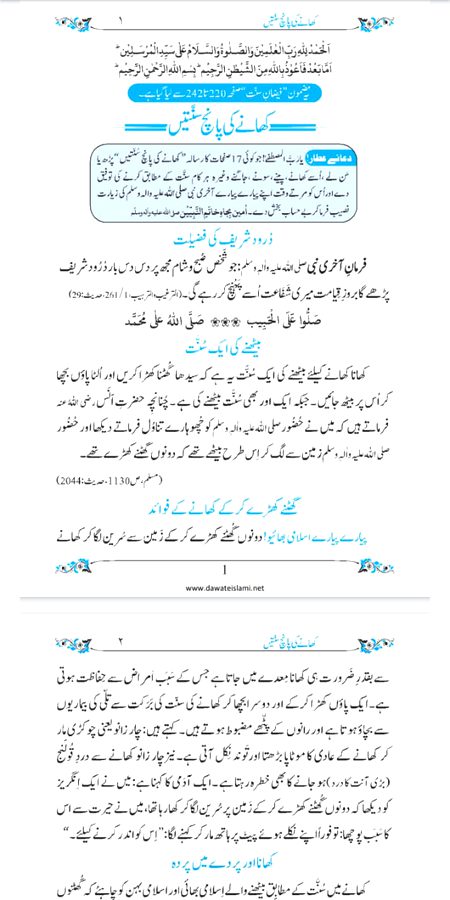 کھانے کی پانچ سنتیں ۱
اَلْحَمْدُ لِلّٰہِ رَبِّ الْعٰلَمِیْنَ وَالصَّلٰوۃُ وَالسَّلَامُ عَلٰی سَیِّدِ الْمُرْسَلِیْنَ ط
اَمَّا بَعْدُ فَاَعُوْذُ بِاللہِ مِنَ الشَّیْطٰنِ الرَّجِیْمِ ط بِسْمِ اللہِ الرَّحْمٰنِ الرَّحِیْمِ ط
یہ مضمون ”فیضانِ سنّت“ صفحہ 220 تا 242 سے لیا گیا ہے۔
کھانے کی پانچ سنّتیں
دعائے عطار! یا ربَّ المصطفٰے! جو کوئی 17 صفحات کا رسالہ ”کھانے کی پانچ سنّتیں“ پڑھ یا
سن لے، اُسے کھانے، پینے، سونے، جاگنے وغیرہ ہر کام سنّت کے مطابق کرنے کی توفیق
دے اور اُس کو مرتے وقت اپنے پیارے پیارے آخری نبی صلی اللہ علیہ والہ وسلم کی زیارت
نصیب فرما کر بے حساب بخش دے۔ اٰمین بجاہِ خاتمِ النَّبِیّٖن صلی اللہ علیہ والہ وسلم
دُرود شریف کی فضیلت
فرمانِ آخری نبی صلی اللہ علیہ والہ وسلم: جو شخص صبح و شام مجھ پر دس دس بار دُرود شریف
پڑھے گا بروزِ قیامت میری شفاعت اُسے پہنچ کر رہے گی۔ (الترغیب الترہیب، 1/261، حدیث: 29)
صَلُّوْا عَلَی الْحَبِیب ❀❀❀ صَلَّی اللہُ عَلٰی مُحَمَّد
بیٹھنے کی ایک سُنَّت
کھانا کھانے کیلئے بیٹھنے کی ایک سنّت یہ ہے کہ سیدھا گھٹنا کھڑا کریں اور اُلٹا پاؤں بچھا
کر اُس پر بیٹھ جائیں۔ جبکہ ایک اور بھی سُنَّت بیٹھنے کی ہے۔ چُنانچِہ حضرتِ اَنَس رضی اللہ عنہ
فرماتے ہیں کہ میں نے حُضُور صلی اللہ علیہ والہ وسلم کو چھوہارے تناوُل فرماتے دیکھا اور حُضُور
صلی اللہ علیہ والہ وسلم زمین سے لگ کر اِس طرح بیٹھے تھے کہ دونوں گھٹنے کھڑے تھے۔
(مسلم، ص1130، حدیث: 2044)
گھٹنے کھڑے کرکے کھانے کے فوائد
پیارے پیارے اسلامی بھائیو! دونوں گھٹنے کھڑے کرکے زمین سے سُرین لگا کر کھانے
1
www.dawateislami.net
کھانے کی پانچ سنتیں ۲
سے بقدرِ ضَرورت ہی کھانا مِعدے میں جاتا ہے جس کے سبب اَمراض سے حفاظت ہوتی
ہے۔ ایک پاؤں کھڑا کرکے اور دوسرا بچھا کر کھانے کی سنّت کی بَرَکت سے تلّی کی بیماریوں
سے بچاؤ ہوتا ہے اور رانوں کے پٹّھے مضبوط ہوتے ہیں۔ کہتے ہیں: چار زانو یعنی چوکڑی مار
کر کھانے کے عادی کا موٹاپا بڑھتا اور تَوند نکل آتی ہے۔ نیز چار زانو کھانے سے دردِ قُولَنج
(بڑی آنت کا درد) ہو جانے کا بھی خطرہ رہتا ہے۔ ایک آدمی کا کہنا ہے: میں نے ایک انگریز
کو دیکھا کہ دونوں گھٹنے کھڑے کرکے زمین پر سُرین لگا کر کھا رہا تھا، میں نے حیرت سے اس
کا سبب پوچھا: تو فوراً اپنے نکلے ہوئے پیٹ پر ہاتھ مار کر کہنے لگا: ”اِس کو اندر کرنے کیلئے۔“
کھانا اور پردے میں پردہ
کھانے میں سُنَّت کے مطابق بیٹھنے والے اِسلامی بھائی اور اسلامی بہن کو چاہئے کہ گھٹنوں